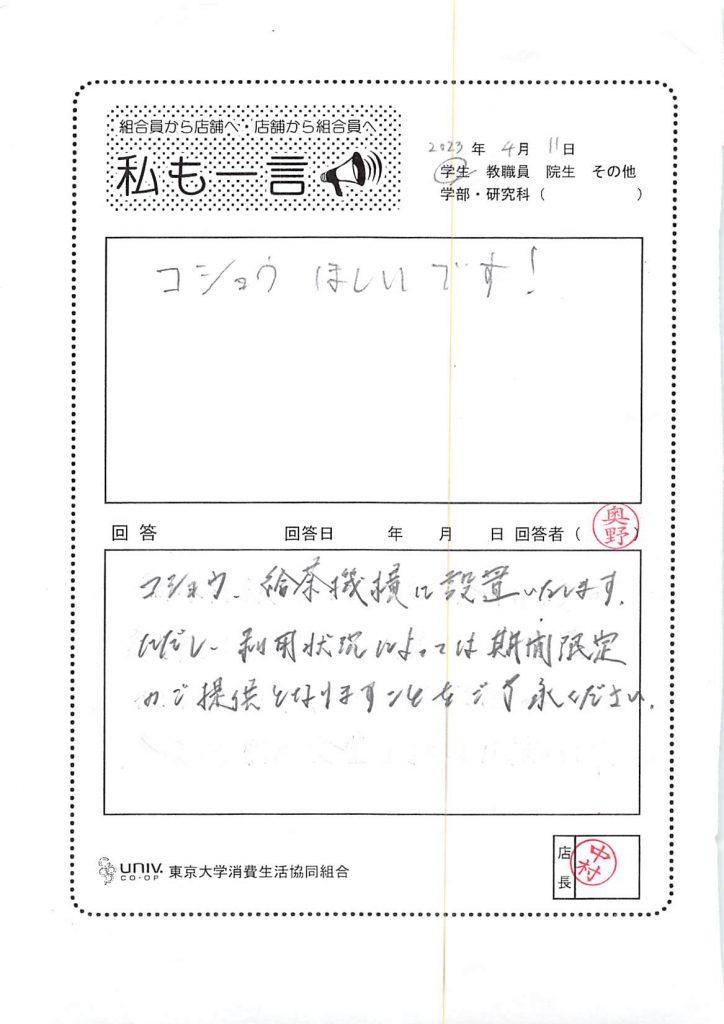 組合員から店舗へ・店舗から組合員へ
私も一言
2023年 4月 11日
学生 教職員 院生 その他
学部・研究科（ ）
コショウ ほしいです！
回答 回答日 年 月 日 回答者（奥野）
コショウ、給茶機横に設置いたします。
ただし、利用状況によっては期間限定
のご提供となりますことをご了承ください。
UNIV.
CO・OP
東京大学消費生活協同組合
店長
中村